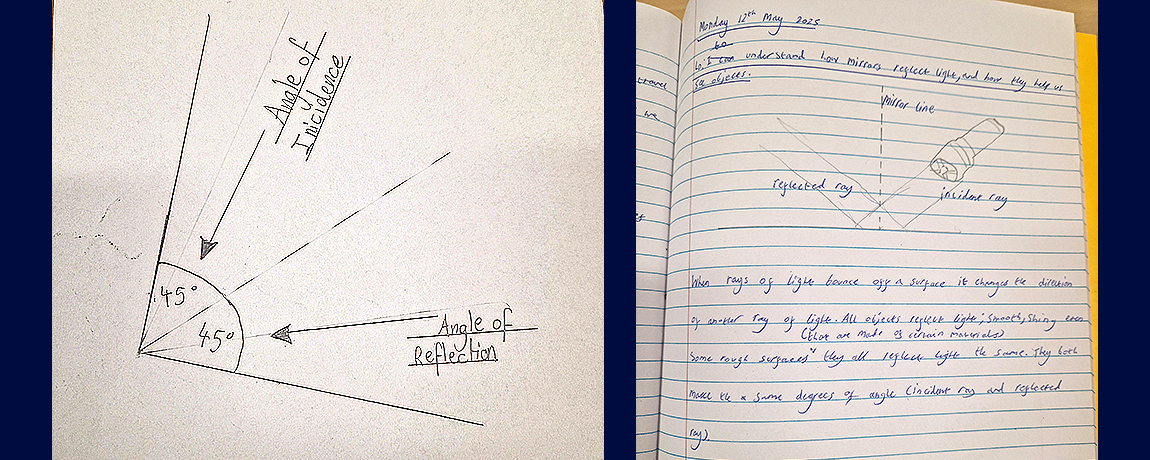 Angle of
Inicidence
45°
45°
Angle of
Reflection
travel
we
Monday 12th May 2025
to
Lo: I can understand how mirrors reflect light, and how they help us
see objects.
mirror line
reflected ray
incident ray
When rays of light bounce off a surface it changed the direction
of another ray of light. All objects reflect light; smooth, shiny even
(that are made of certain materials)
some rough surfaces" they all reflect light the same. They both
make the a same degrees of angle (incident ray and reflected
ray).